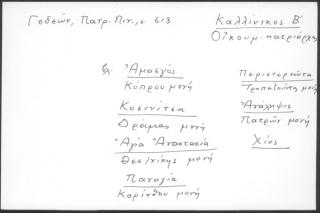 Γεδεών, Πατρ. Πιν., σ. 613
Καλλίνικος Β'
Οἰκουμ. πατριάρχης
Ἀμασγός
Κύπρου μονή
Κοσινίτσα
Δράμας μονή
Ἁγία Ἀναστασία
Θεσ/νίκης μονή
Παναγία
Κορίνθου μονή
Περιστερεώτα
Τραπεζοῦντος μονή
Ἀνάληψις
Πατρῶν μονή
Χίος